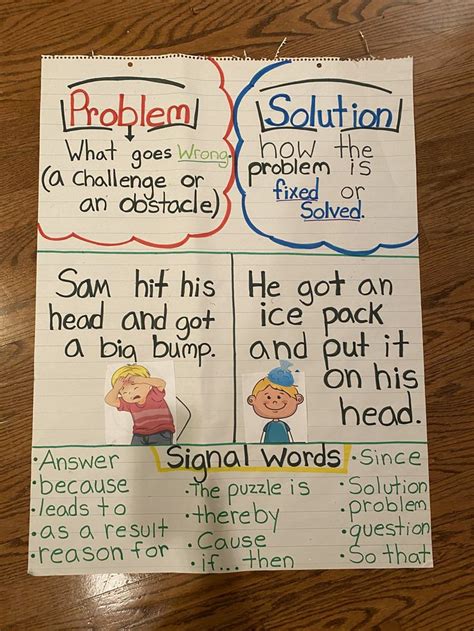 Problem
What goes Wrong.
(a challenge or
an obstacle)
Solution
how the
problem is
fixed or
Solved.
Sam hit his
head and got
a big bump.
He got an
ice pack
and put it
on his
head.
Signal Words
• Answer
• because
• leads to
• as a result
• reason for
• The puzzle is
• thereby
• Cause
• if...then
• Since
• Solution
• problem
• question
• So that